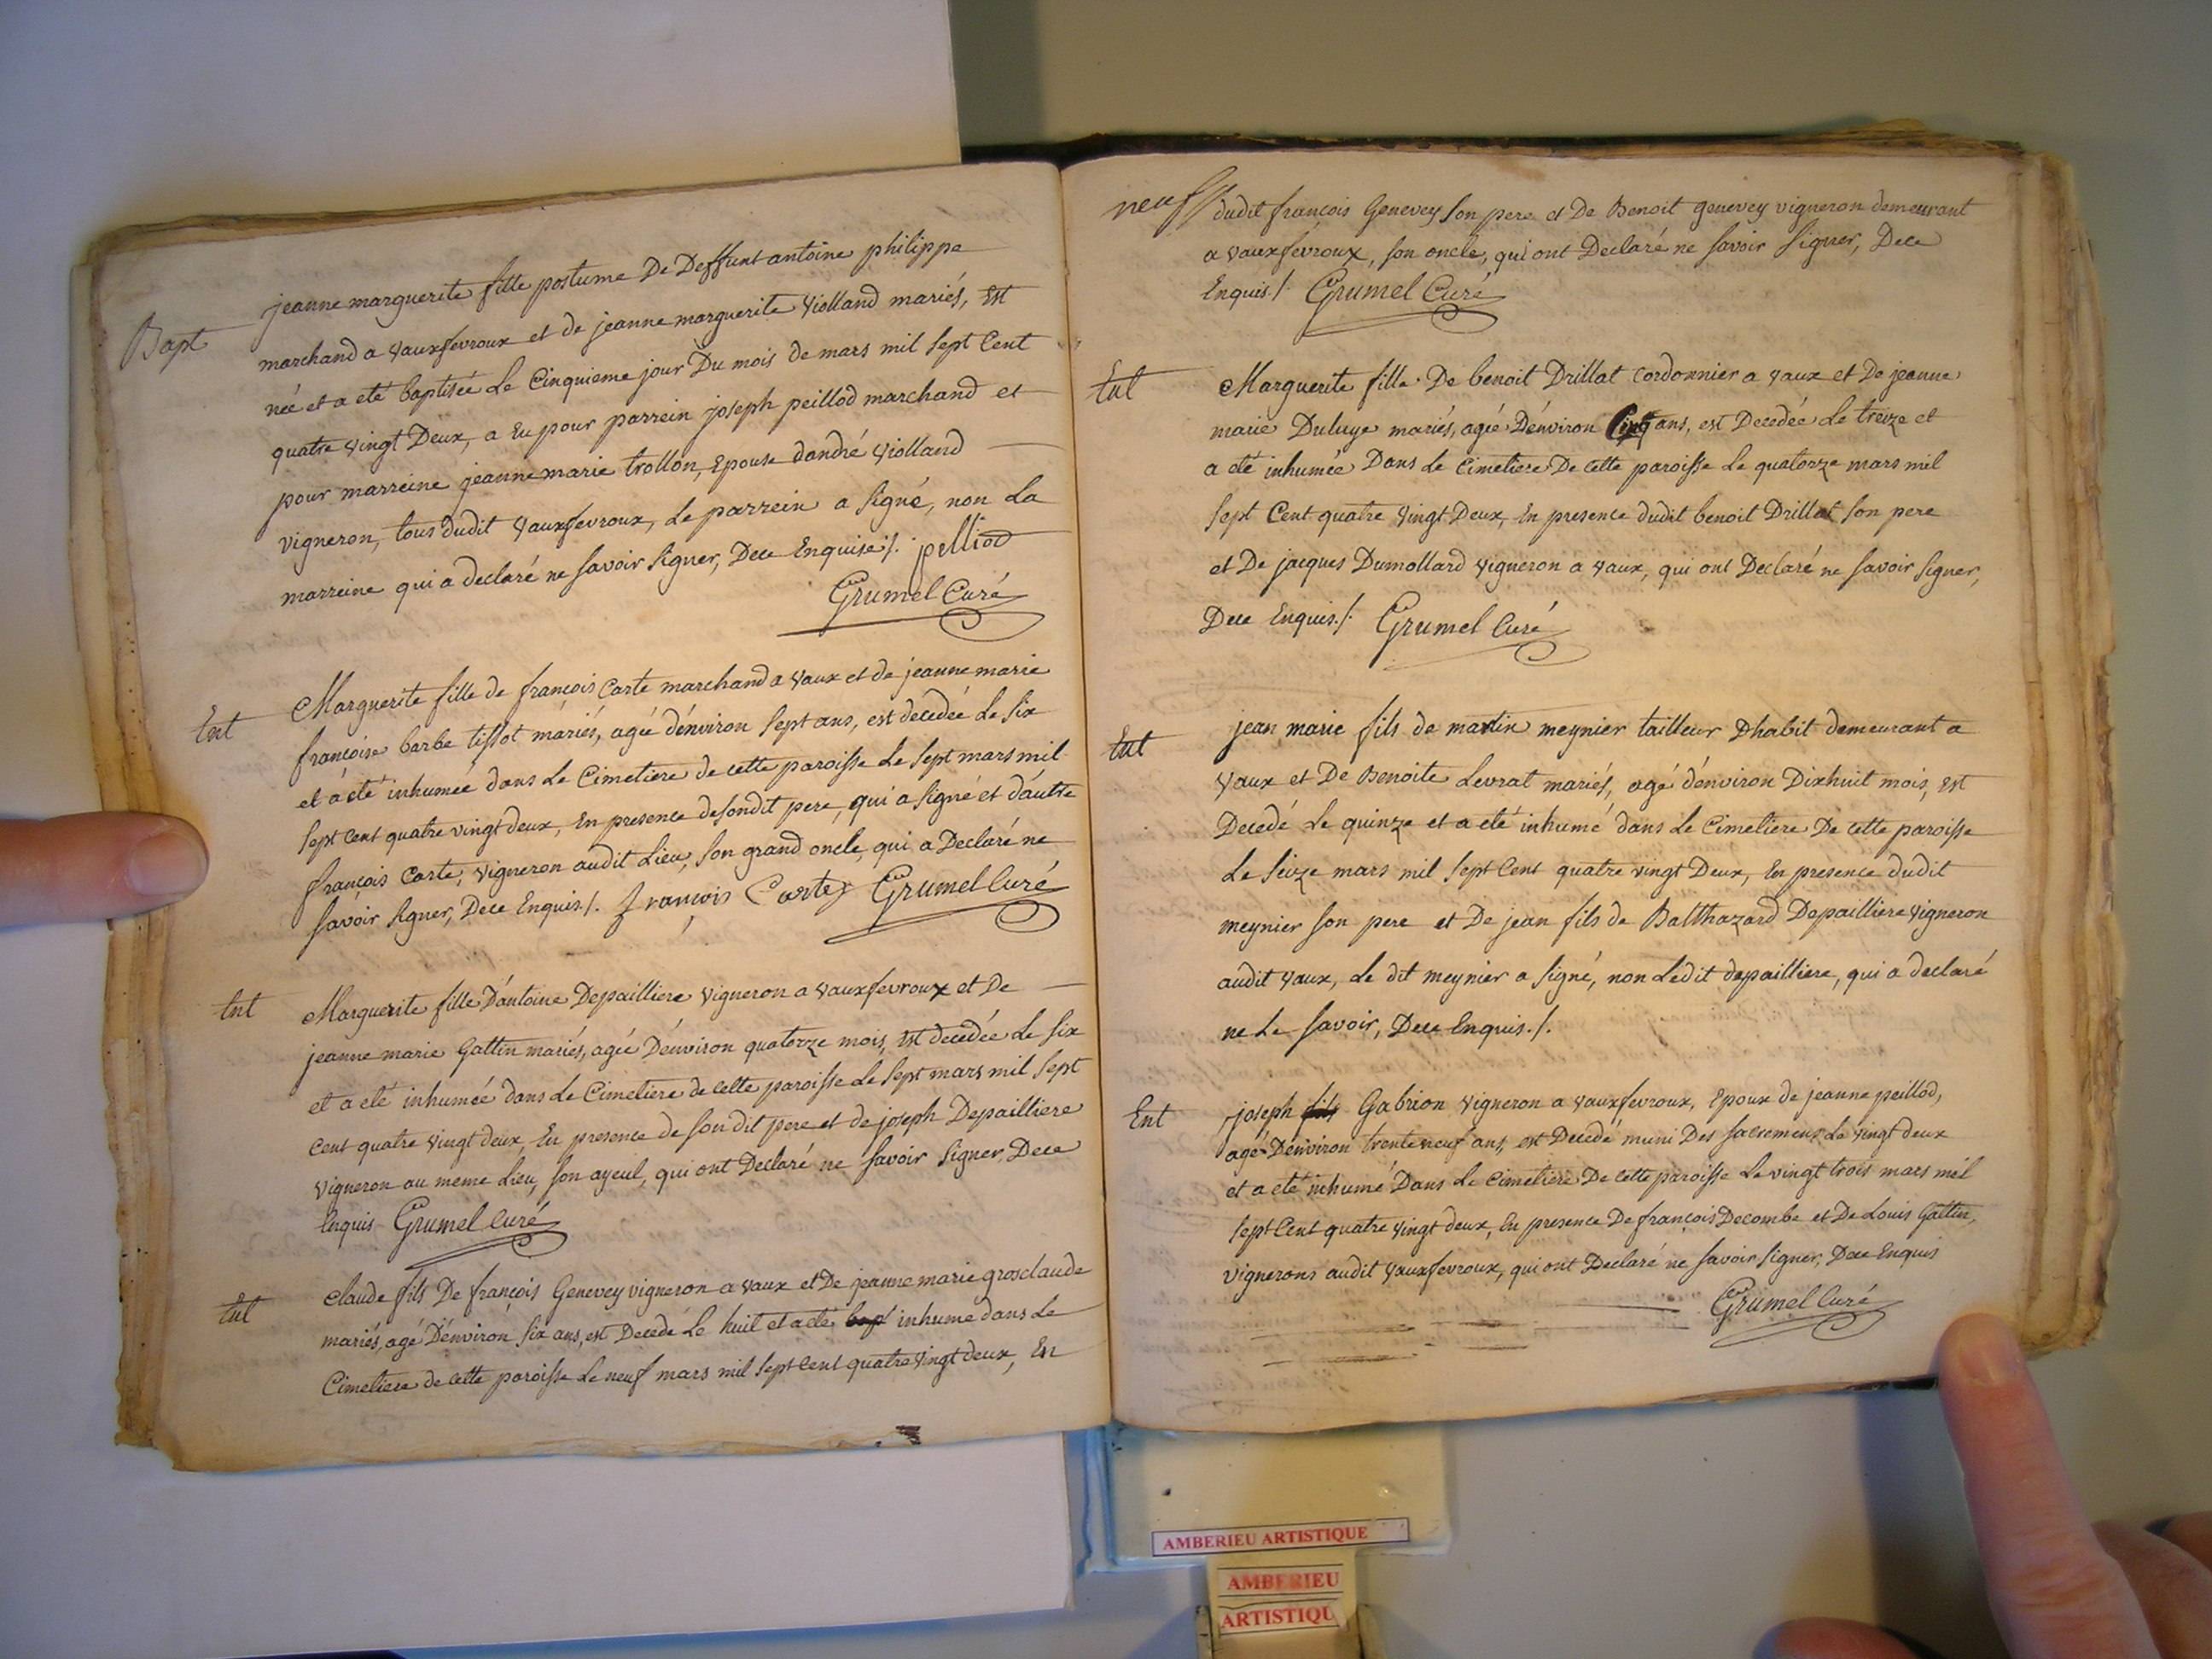 Bapt
jeanne marguerite fille postume De Deffunt antoine philippe
marchand a vauxfevroux et de jeanne marguerite violland mariés, est
née et a eté baptisée Le Cinquieme jour Du mois de mars mil sept Cent
quatre vingt Deux, a Eu pour parrein joseph peillod marchand et
pour marreine jeanne marie trollon, Epouse dandré violland
vigneron, tous dudit vauxfevroux, Le parrein a signé, non La
marreine qui a declaré ne savoir signer, Dece Enquise ./. pelliod
Grumel Curé
Ent
Marguerite fille de françois Carte marchand a vaux et de jeanne marie
francoise barbe tissot máriés, agée d'énviron sept ans, est décedée Le six
et á été inhumée dans Le Cimetiere de cette paroisse Le sept mars mil
sept cent quatre vingt deux, En presence desondit pere, qui a signé et d'autre
françois Carte, vigneron audit Lieu, son grand oncle, qui a Declaré ne
savoir signer, Dece Enquis ./. françois Carte Grumel Curé
Ent
Marguerite fille D'antoine Depailliere vigneron a vauxfevroux et De
jeanne marie Gattin mariés, agée D'énviron quatorze mois, est decedée Le six
et a eté inhumée dans Le Cimetiere de cette paroisse Le sept mars mil sept
cent quatre vingt deux, En presence de son dit pere et de joseph Depailliere
vigneron au meme Lieu, son ayeul, qui ont Declaré ne savoir signer, Dece
Enquis Grumel Curé
Ent
claude fils De françois Genevey vigneron a vaux et De jeanne marie grosclaude
mariés, agé D'énviron six ans, est Decedé Le huit et a eté bapt inhumé dans Le
Cimetiere de cette paroisse Le neuf mars mil sept cent quatre vingt deux, En
neuf
dudit françois Genevey son pere et De Benoit genevey vigneron demeurant
a vauxfévroux, son oncle, qui ont Declaré ne savoir signer, Dece
Enquis ./. Grumel Curé
Ent
Marguerite fille De benoit Drillat Cordonnier a vaux et De jeanne
marie Duluye mariés, agée D'énviron Cinq ans, est Decedée Le treize et
a eté inhumée Dans Le Cimetiere De cette paroisse Le quatorze mars mil
sept Cent quatre vingt Deux, En presence dudit benoit Drillat son pere
et De jacques Dumollard vigneron a vaux, qui ont Declaré ne savoir signer,
Dece Enquis ./. Grumel Curé
Ent
jean marie fils de martin meynier tailleur Dhabit demeurant a
vaux et De Benoite Levrat mariés, agé d'énviron Dixhuit mois, Est
Decedé Le quinze et a eté inhumé dans Le Cimetiere De cette paroisse
Le seize mars mil sept Cent quatre vingt Deux, En presence dudit
meynier son pere et De jean fils de Balthazard Depailliere vigneron
audit vaux, Le dit meynier a signé, non Ledit depailliere, qui a declaré
ne Le savoir, Dece Enquis ./.
Ent
joseph fils Gabrion vigneron a vauxfevroux, Epoux de jeanne peillod,
agé D'énviron trente neuf ans, est Decedé muni Des sacremens Le vingt deux
et a eté inhumé Dans Le Cimetiere De cette paroisse Le vingt trois mars mil
sept Cent quatre vingt deux, En presence De françois Decombe et De Louis Gattin,
vignerons audit vauxfevroux, qui ont Declaré ne savoir signer, Dece Enquis
Grumel Curé
AMBERIEU ARTISTIQUE
AMBERIEU
ARTISTIQU